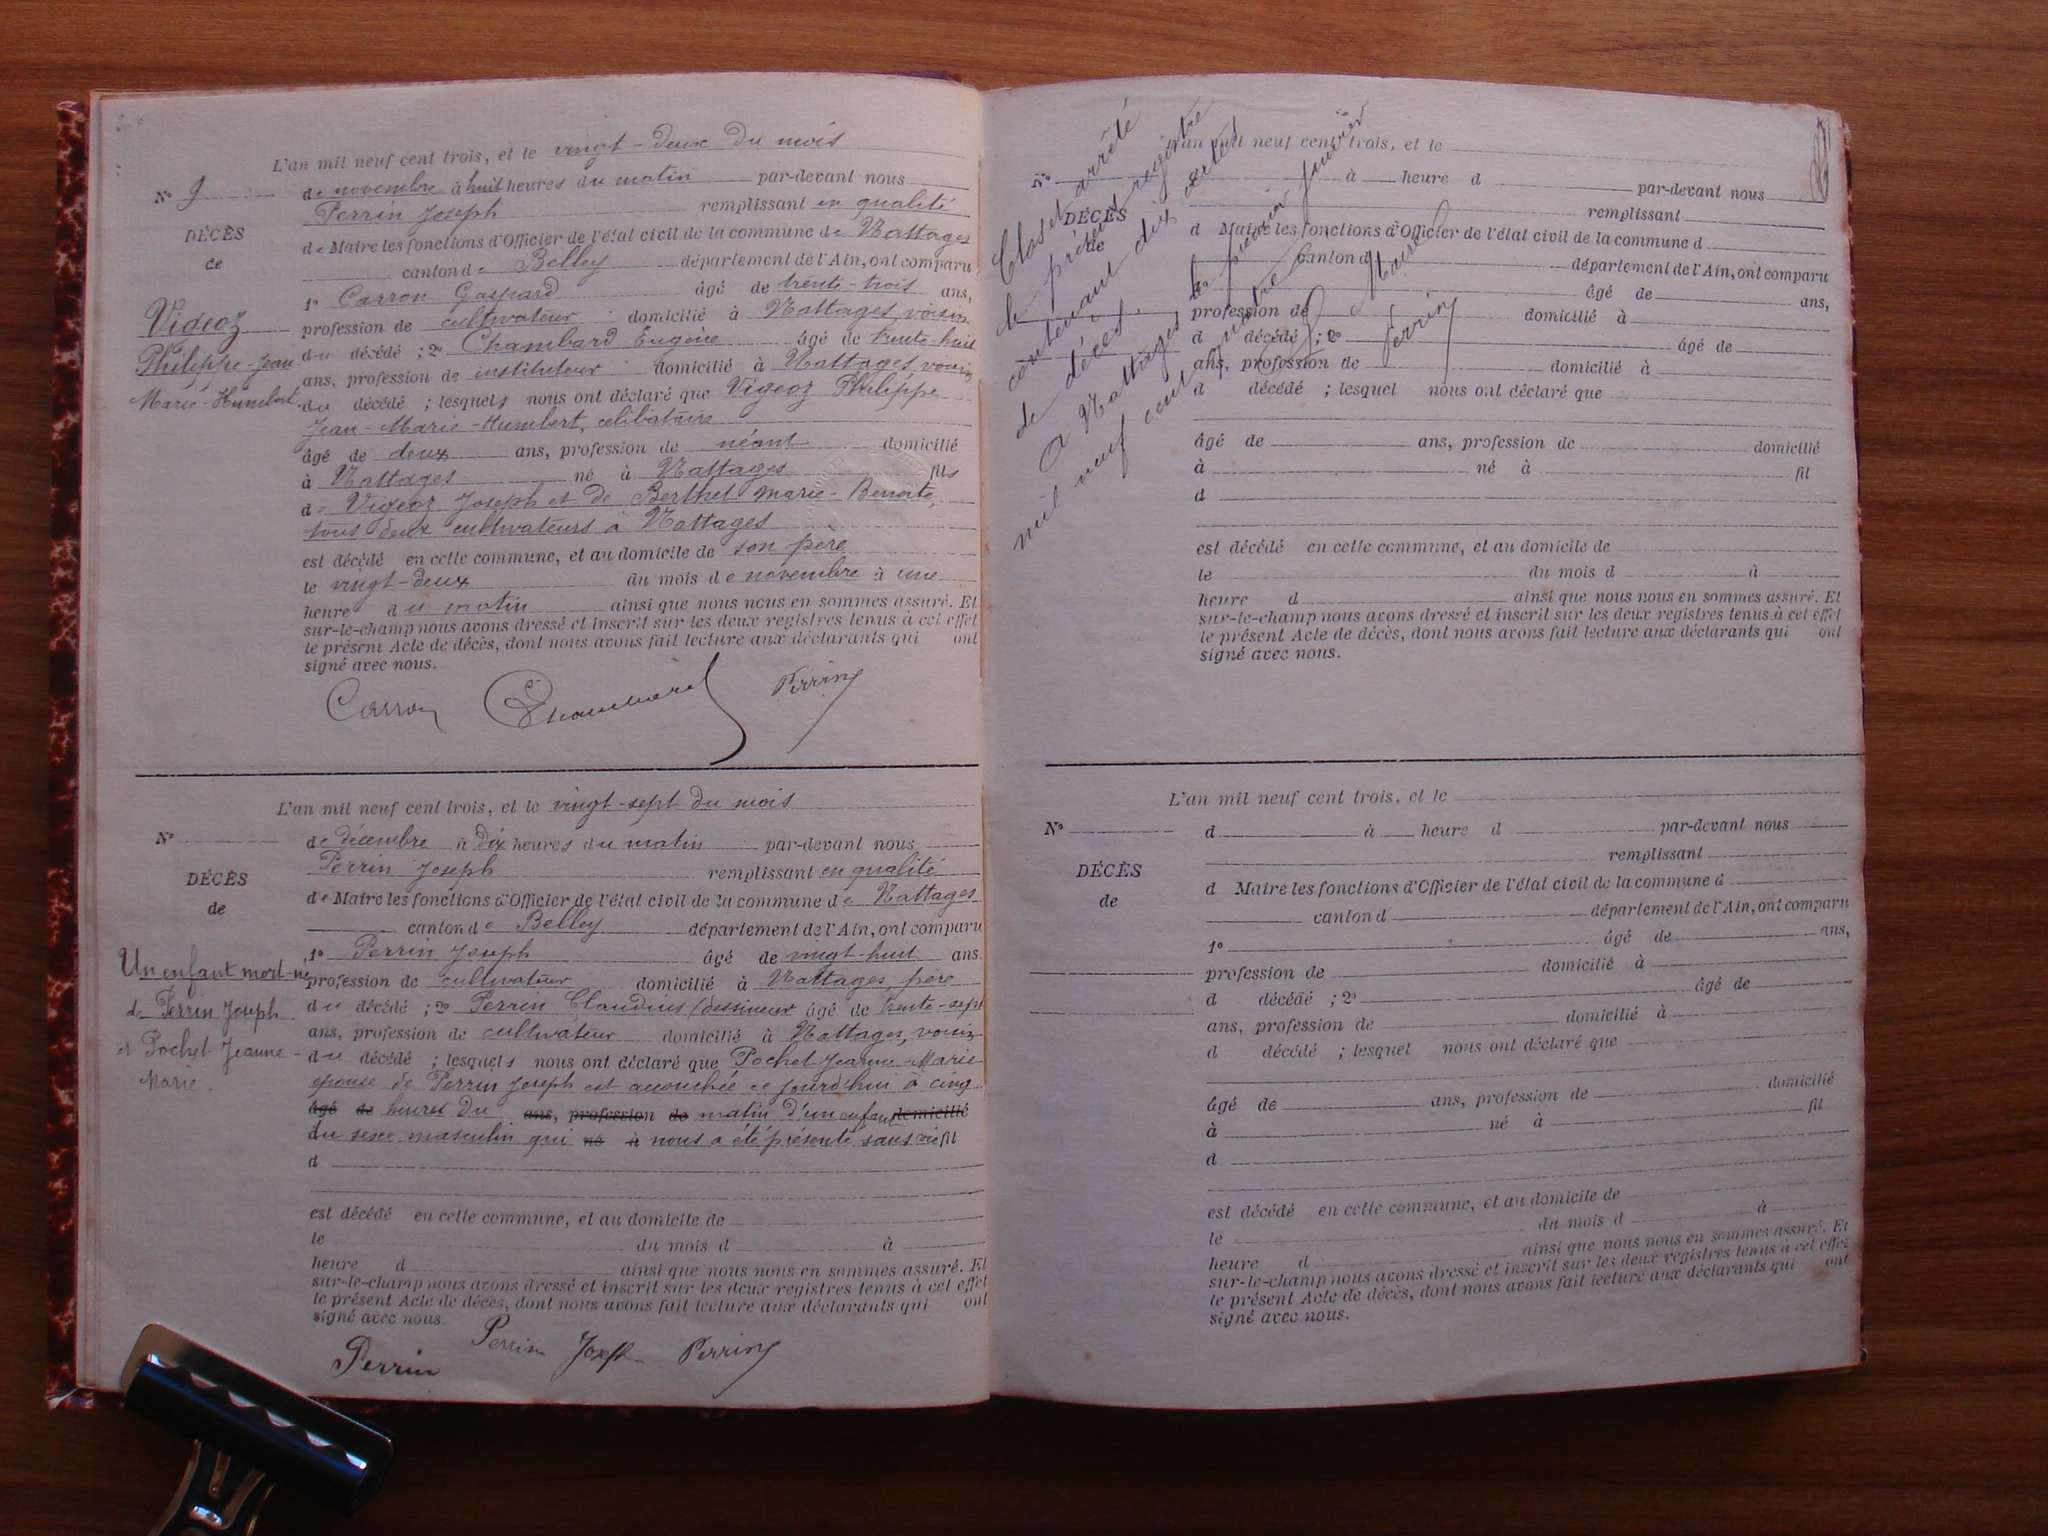 L'an mil neuf cent trois, et le vingt-deux du mois
N° 9
de novembre à huit heures du matin par-devant nous
Perrin Joseph remplissant en qualité
DÉCÈS
de Maire les fonctions d'Officier de l'état civil de la commune de Nattages
de
canton de Belley département de l'Ain, ont comparu
1° Carron Gaspard âgé de trente-trois ans,
Vigeoz
Philippe-Jean
Marie-Humbert
profession de cultivateur domicilié à Nattages, voisin
du décédé ; 2° Chambard Eugène âgé de trente-huit
ans, profession de instituteur domicilié à Nattages, voisin
du décédé ; lesquels nous ont déclaré que Vigeoz Philippe
Jean-Marie-Humbert, célibataire
âgé de deux ans, profession de néant domicilié
à Nattages né à Nattages fils
de Vigeoz Joseph et de Berthet Marie-Benoite,
tous deux cultivateurs à Nattages
est décédé en cette commune, et au domicile de son père
le vingt-deux du mois de novembre à une
heure du matin ainsi que nous nous en sommes assuré. Et
sur-le-champ nous avons dressé et inscrit sur les deux registres tenus à cet effet
le présent Acte de décès, dont nous avons fait lecture aux déclarants qui ont
signé avec nous.
Carron Chambard Perrin
L'an mil neuf cent trois, et le vingt-sept du mois
N°
de décembre à dix heures du matin par-devant nous
Perrin Joseph remplissant en qualité
DÉCÈS
de Maire les fonctions d'Officier de l'état civil de la commune de Nattages
de
canton de Belley département de l'Ain, ont comparu
1° Perrin Joseph âgé de vingt-huit ans.
Un enfant mort-né
d. Perrin Joseph
et Pochet Jeanne-
Marie.
profession de cultivateur domicilié à Nattages, père
du décédé ; 2° Perrin Claudius (dessineur âgé de trente-sept
ans, profession de cultivateur domicilié à Nattages, voisin
du décédé ; lesquels nous ont déclaré que Pochet Jeanne-Marie
épouse de Perrin Joseph est accouchée ce jourd'hui à cinq
âgé de heures du ans, profession de matin d'un enfant domicilié
du sexe masculin qui né à nous a été présenté sans vie fil
d
est décédé en cette commune, et au domicile de
le du mois d à
heure d ainsi que nous nous en sommes assuré. Et
sur-le-champ nous avons dressé et inscrit sur les deux registres tenus à cet effet
le présent Acte de décès, dont nous avons fait lecture aux déclarants qui ont
signé avec nous.
Perrin Perrin Joseph Perrin
Clos et arrêté
le présent registre
contenant dix actes
de décès.
A Nattages le premier janvier
mil neuf cent quatre
Le Maire
Perrin
L'an mil neuf cent trois, et le
N° d à heure d par-devant nous
remplissant
DÉCÈS
de
d Maire les fonctions d'Officier de l'état civil de la commune d
canton d département de l'Ain, ont comparu
1° âgé de ans,
profession de domicilié à
d décédé ; 2° âgé de
ans, profession de domicilié à
d décédé ; lesquel nous ont déclaré que
âgé de ans, profession de domicilié
à né à fil
d
est décédé en cette commune, et au domicile de
le du mois d à
heure d ainsi que nous nous en sommes assuré. Et
sur-le-champ nous avons dressé et inscrit sur les deux registres tenus à cet effet
le présent Acte de décès, dont nous avons fait lecture aux déclarants qui ont
signé avec nous.
L'an mil neuf cent trois, et le
N° d à heure d par-devant nous
remplissant
DÉCÈS
d Maire les fonctions d'Officier de l'état civil de la commune d
de
canton d département de l'Ain, ont comparu
1° âgé de ans,
profession de domicilié à
d décédé ; 2° âgé de
ans, profession de domicilié à
d décédé ; lesquel nous ont déclaré que
âgé de ans, profession de domicilié
à né à fil
d
est décédé en cette commune, et au domicile de
le du mois d à
heure d ainsi que nous nous en sommes assuré. Et
sur-le-champ nous avons dressé et inscrit sur les deux registres tenus à cet effet
le présent Acte de décès, dont nous avons fait lecture aux déclarants qui ont
signé avec nous.